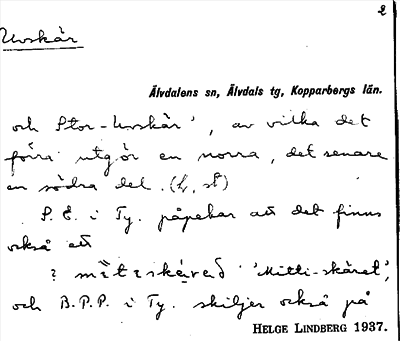 2
Urskär
Älvdalens sn, Älvdals tg, Kopparbergs län.
och Stor-Urskär', av vilka det
förra utgör en norra, det senare
en södra del. (
P. E. i Ty. påpekar att det finns
också ett
? 'Mitti-skäret',
och B.P.P. i Ty. skiljer också på
HELGE LINDBERG 1937.